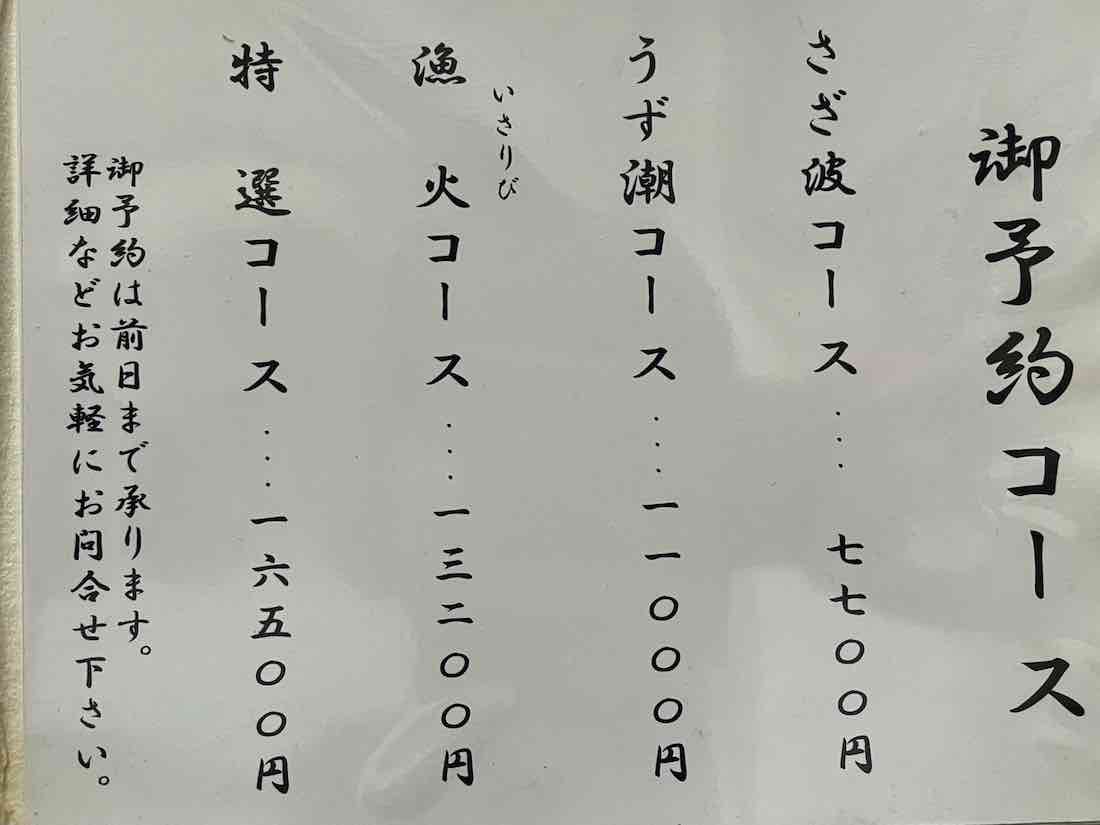 御予約コース
さざ波コース・・・ 七七〇〇円
うず潮コース・・・一一〇〇〇円
いさりび
漁火コース・・・一三二〇〇円
特選コース・・・一六五〇〇円
御予約は前日まで承ります。
詳細などお気軽にお問合せ下さい。